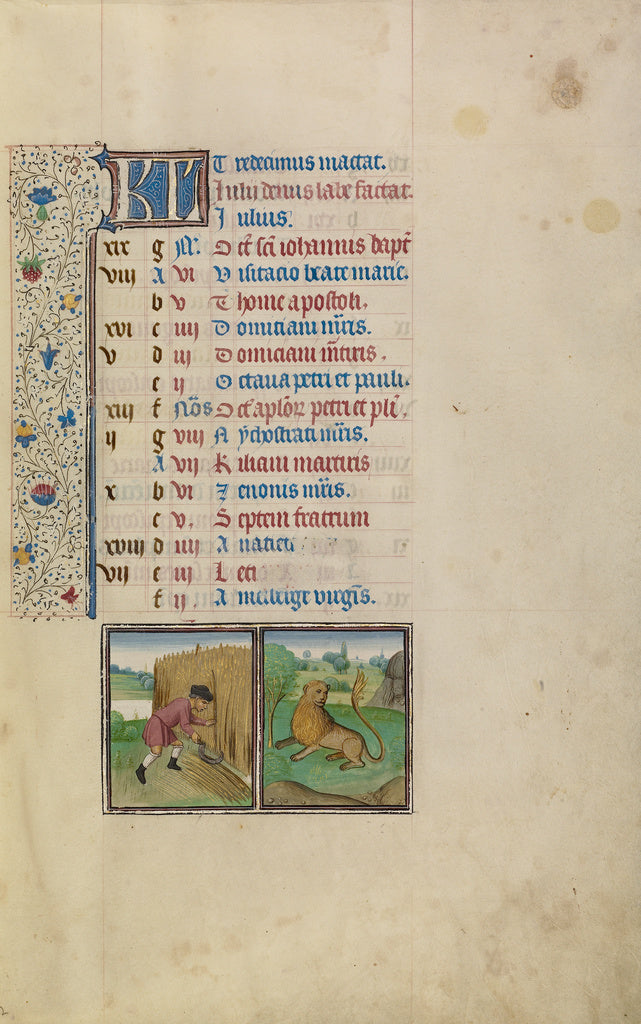 Kl Tredecimus mactat.
Iulii denus labefactat.
Iulius.
xix g Oct sci iohannis bapt
viii A vi Visitacio beate marie.
b v Thome apostoli.
xvi c iiii Domitiani mris.
v d iii Domiciani mtiris.
e ii Octaua petri et pauli.
xiii f Nōs Oct aplor petri et pli.
ii g viii Nychostrati mris.
A vii Kiliani martiris
x b vi Zenonis mris.
c v. Septem fratrum
xviii d iiii Anacleti
vii e iii Leti
f ii. Amelberge virgis.